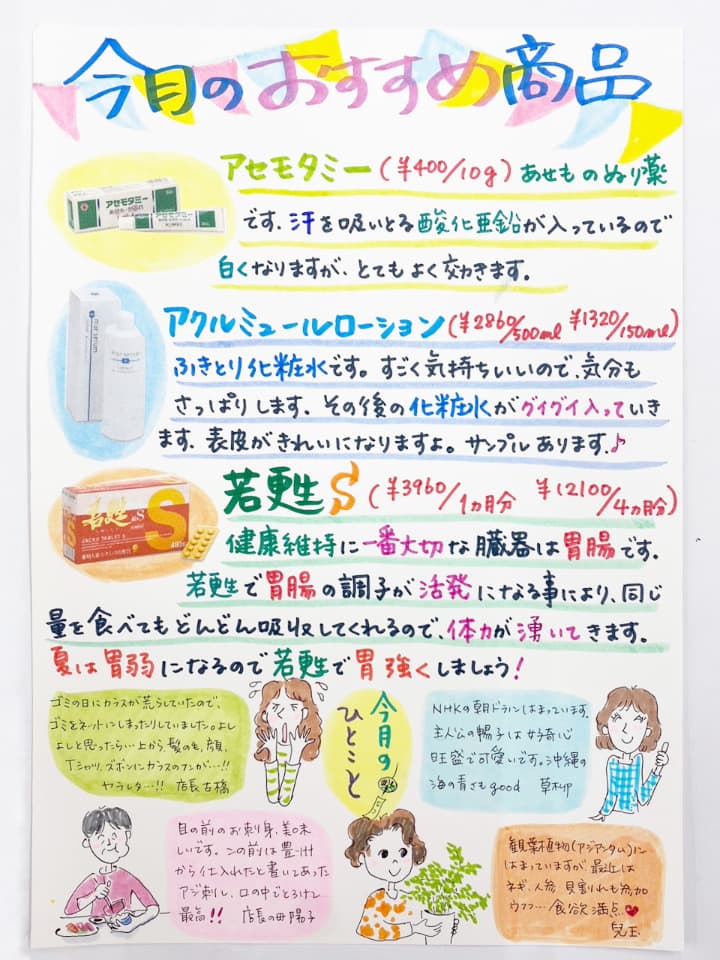 今月のおすすめ商品
アセモタミー(¥400/10g)あせものぬり薬
アセモタミー
アセモタミー
です、汗を吸いとる酸化亜鉛が入っているので
白くなりますが、とてもよく効きます。
アクルミュールローション(¥2860/500ml ¥1320/150ml)
ふきとり化粧水です。すごく気持ちいいので、気分も
さっぱりします、その後の化粧水がグイグイ入っていき
ます、表皮がきれいになりますよ。サンプルあります♪
若甦S(¥3960/1ヵ月分 ¥12100/4ヵ月分)
若甦 S
JACKO TABLET S
健康維持に一番大切な臓器は胃腸です。
若甦で胃腸の調子が活発になる事により、同じ
量を食べてもどんどん吸収してくれるので、体力が湧いてきます。
夏は胃弱になるので若甦で胃強くしましょう!
今月の
ひとこと
ゴミの日にカラスが荒らしていたので、
ゴミをネットにしまったりしていました。よし
よしと思ったら…上から、髪の毛、顔、
Tシャツ、ズボンにカラスのフンが…!!
ヤラレタ…!! 店長古橋
NHKの朝ドラにはまっています。
主人公の暢子は好奇心
旺盛で可愛いです。沖縄の
海の青さもgood 草柳
目の前のお刺身、美味
しいです。この前は豊汁
から仕入れたと書いてあった
アジ刺し、口の中でとろけて
最高!! 店長の母陽子
観葉植物(アジアンタム)に
はまっていますが、最近は
ネギ、人参、貝割れも参加
ウフフ…食欲満点♥
児玉